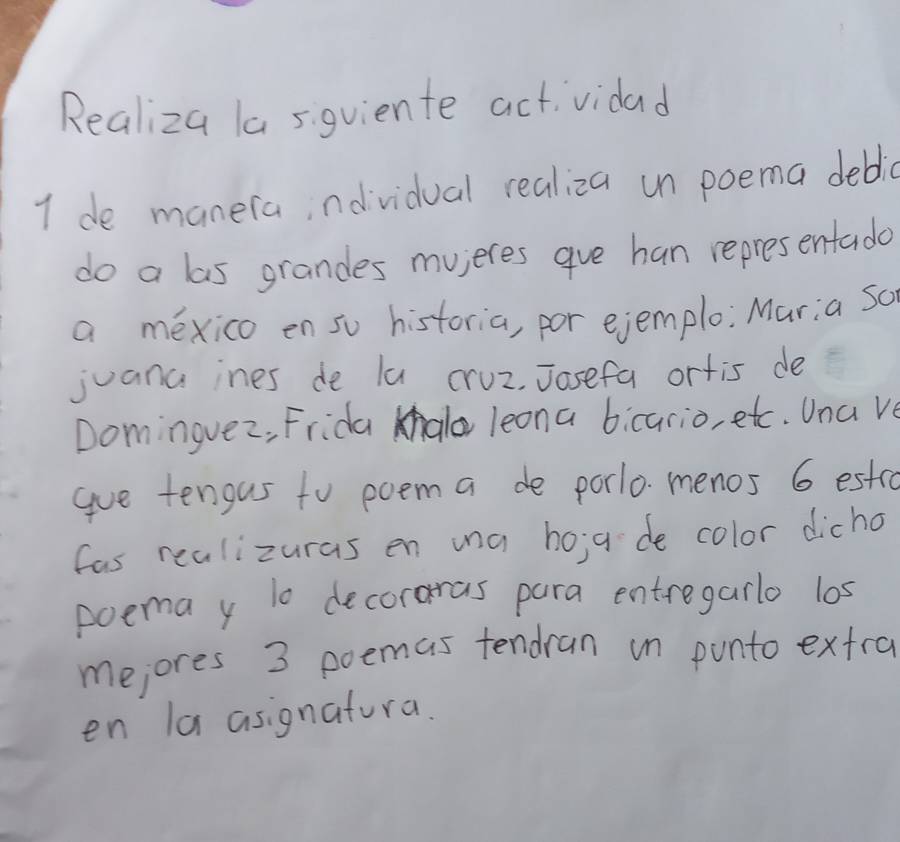 Realiza la siguiente actividad
1 de manera individual realiza un poema debic
do a las grandes mujeres que han representado
a méxico en su historia, por ejemplo: Maria Sor
juana ines de la cruz. Josefa ortis de
Dominguez, Frida Khalo leona bicario, etc. Una ve
que tengas tu poema de porlo menos 6 estro
fas realizaras en una hoja de color dicho
poema y lo decoraras para entregarlo los
mejores 3 poemas tendran un punto extra
en la asignatura.